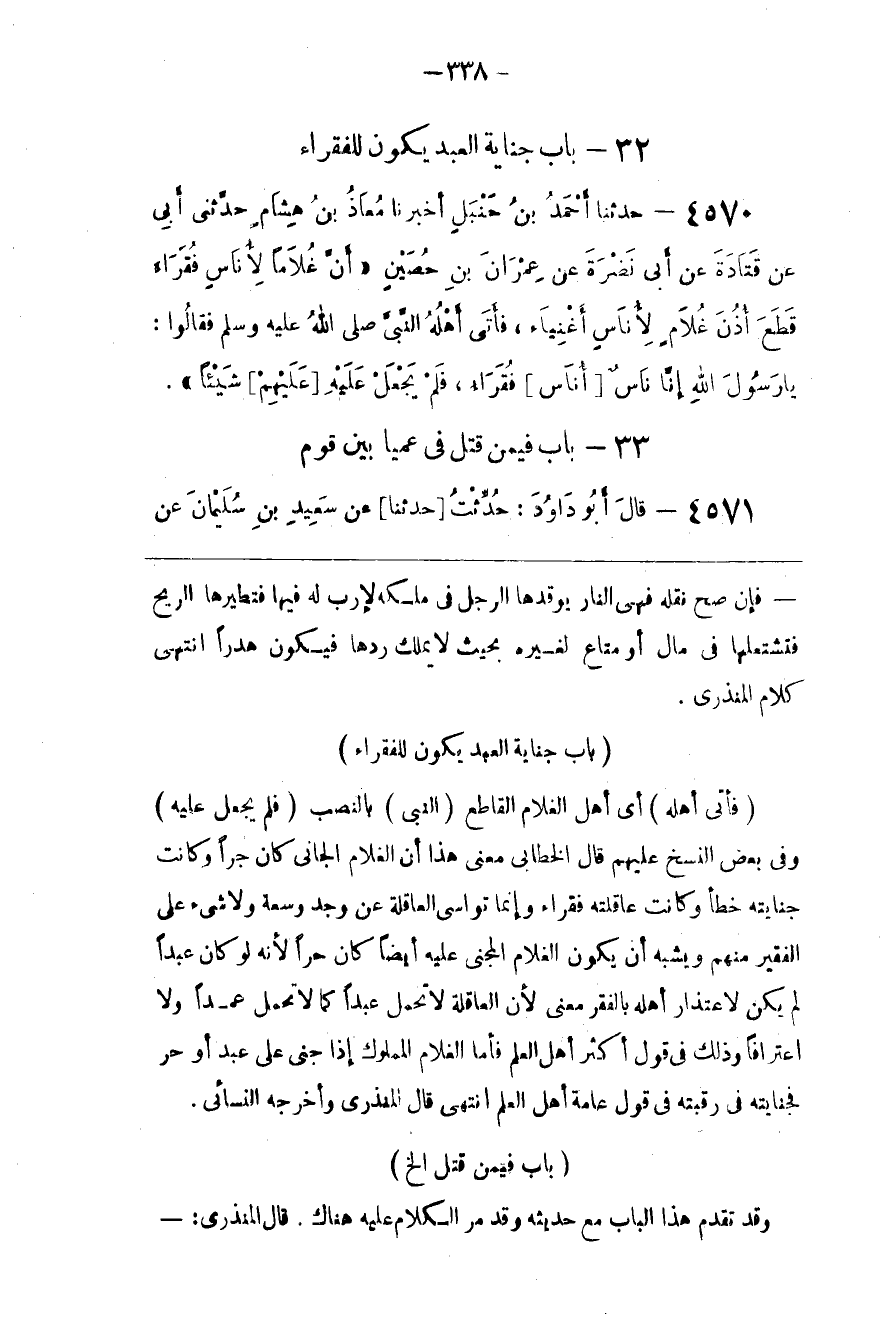 - ٣٣٨ -
٣٢ - باب جناية العبد يكون للفقراء
٤٥٧٠ - حدثنا أَحْمَدُ بنُ حَنْبَلٍ أخبرنا مُعَاذُ بنُ هِشَامٍ حدَّثنى أَبِى
عن قَتَادَةَ عن أَبى نَضْرَةَ عن عِمْرَانَ بنِ حُصَيْنٍ « أَنَّ غُلاَماً لِأُنَاسٍ فُقَرَاءَ
قَطَعَ أُذُنَ غُلاَمٍ لِأُنَاسٍ أَغْنِيَاءَ ، فأَتَى أَهْلُهُ النَّبىَّ صلى اللهُ عليه وسلم فقالُوا :
يارَسُولَ اللهِ إِنَّا نَاسٌ [ أُنَاس ] فُقَرَاء ، فَلَمْ يَجْعَلْ عَلَيْهِ [عَلَيْهِمْ] شَيْئاً » .
٣٣ - باب فيمن قتل فى عميا بين قوم
٤٥٧١ - قالَ أَبُو دَاوُدَ : حُدِّثْتُ [حدثنا] عن سَعِيدِ بنِ سُلَيْمانَ عن
— فإن صح نقله فهى النار يوقدها الرجل فى ملكه لإرب له فيها فتطيرها الريح
فتشتعلها فى مال أو متاع لغيره بحيث لا يملك ردها فيكون هدراً انتهى
كلام المنذرى .
( باب جناية العبد يكون للفقراء )
( فأتى أهله ) أى أهل الغلام القاطع ( النبى ) بالنصب ( فلم يجعل عليه )
وفى بعض النسخ عليهم قال الخطابى معنى هذا أن الغلام الجانى كان حراً وكانت
جنايته خطأ وكانت عاقلته فقراء وإنما تواسى العاقلة عن وجد وسعة ولاشىء على
الفقير منهم ويشبه أن يكون الغلام المجنى عليه أيضاً كان حراً لأنه لو كان عبداً
لم يكن لاعتذار أهله بالفقر معنى لأن العاقلة لا تحمل عبداً كما لا تحمل عمداً ولا
اعترافاً وذلك فى قول أكثر أهل العلم فأما الغلام المملوك إذا جنى على عبد أو حر
فجنايته فى رقبته فى قول عامة أهل العلم انتهى قال المنذرى وأخرجه النسائى .
( باب فيمن قتل الخ )
وقد تقدم هذا الباب مع حديثه وقد مر الكلام عليه هناك . قال المنذرى: —